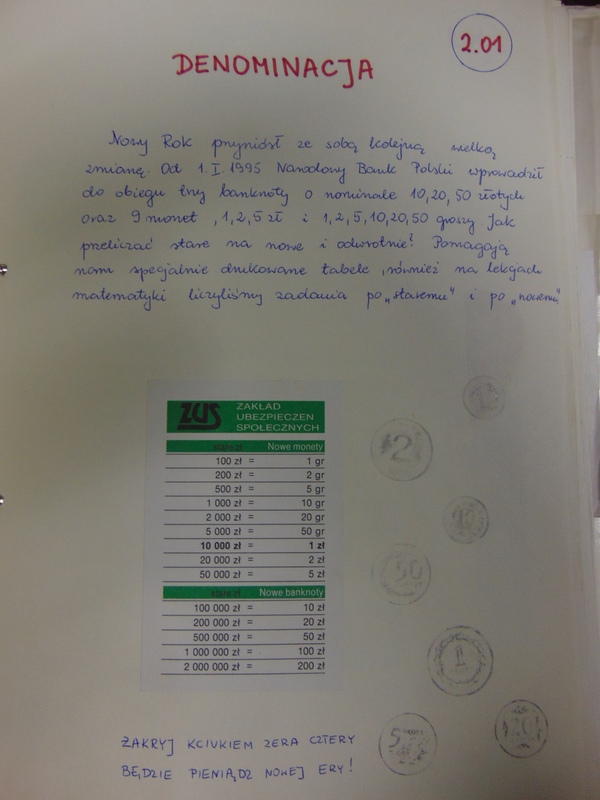 2.01
DENOMINACJA
Nowy Rok przyniósł ze sobą kolejną wielką
zmianę. Od 1.I.1995 Narodowy Bank Polski wprowadził
do obiegu trzy banknoty o nominale 10,20,50 złotych
oraz 9 monet , 1,2,5 zł i 1,2,5,10,20,50 groszy Jak
przeliczać stare na nowe i odwrotnie? Pomagają
nam specjalnie drukowane tabele , również na lekcjach
matematyki liczyliśmy zadania po „staremu" i po „nowemu"
ZUS ZAKŁAD
UBEZPIECZEŃ
SPOŁECZNYCH
stare zł Nowe monety
100 zł = 1 gr
200 zł = 2 gr
500 zł = 5 gr
1 000 zł = 10 gr
2 000 zł = 20 gr
5 000 zł = 50 gr
10 000 zł = 1 zł
20 000 zł = 2 zł
50 000 zł = 5 zł
stare zł Nowe banknoty
100 000 zł = 10 zł
200 000 zł = 20 zł
500 000 zł = 50 zł
1 000 000 zł = 100 zł
2 000 000 zł = 200 zł
1
2
10
50
1
5
20
ZAKRYJ KCIUKIEM ZERA CZTERY
BĘDZIE PIENIĄDZ NOWEJ ERY!